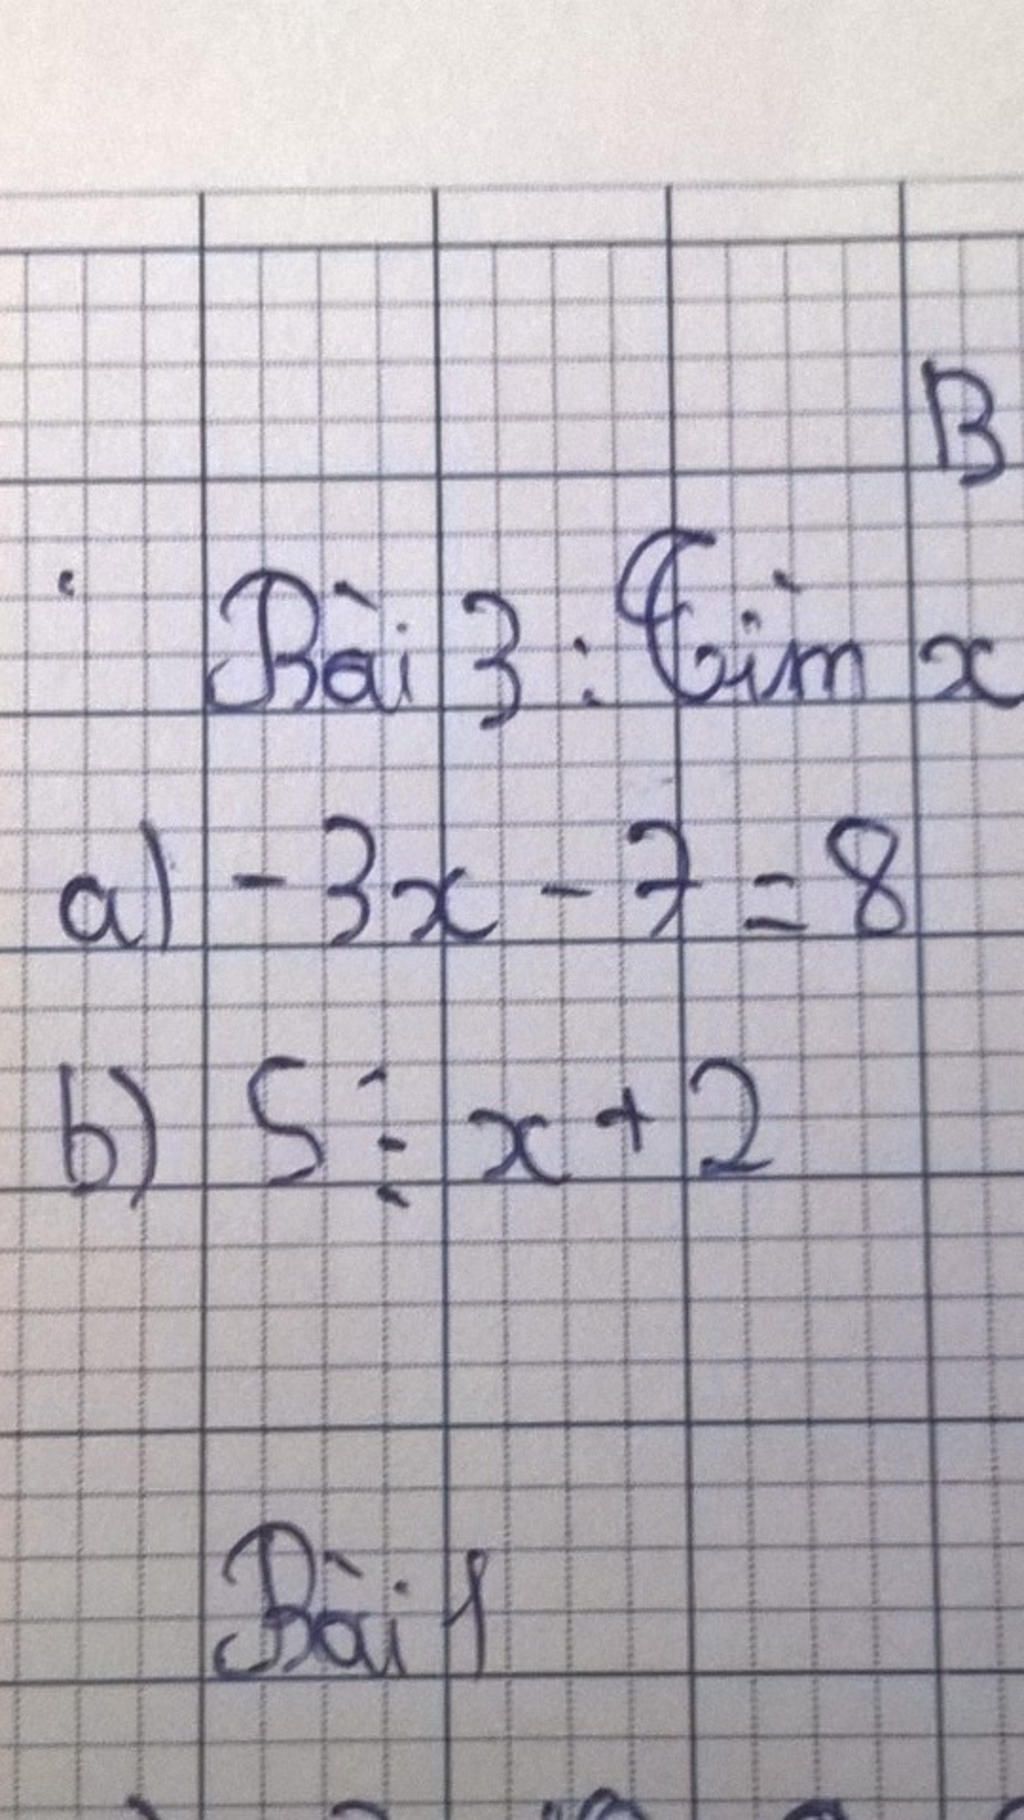 B
Bài 3: Tìm x
a) -3x - 7 = 8
b) 5 ⋮ x + 2
Bài 1